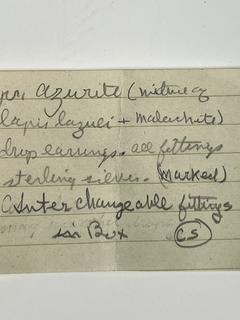 pr. azurite (mixture of
lapis lazuei + malachite)
drop earrings. all fittings
sterling silver. (marked)
Inter changeable fittings
in Box CS